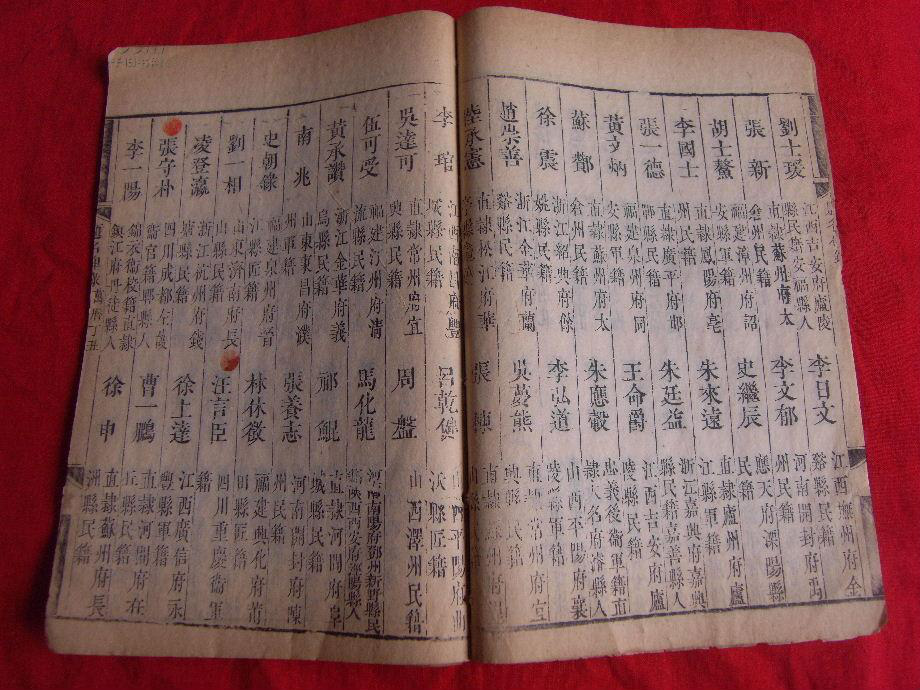 劉士瑗 江西吉安府廬陵
縣民籍安福縣人
李日文 江西撫州府金
谿縣民籍
張新 直隸蘇州府太
倉州民籍
李文郁 河南開封府禹
胡士鰲 福建漳州府詔
安縣軍籍
史繼辰 應天府溧陽
縣民籍
李國士 直隸鳳陽府亳
州民籍
朱來遠 直隸廬州府廬
江縣軍籍
張一德 直隸廣平府邯
朱廷益 浙江嘉興府嘉興
縣民籍嘉善縣人
黃文炳 福建泉州府同
安縣民籍
王命爵 江西吉安府廬
陵縣民籍
蘇酇 直隸蘇州府太
倉州民籍
朱應轂 忠義後衛軍籍直
隸大名府濬縣人
徐震 浙江紹興府餘
姚縣民籍
李弘道 山西平陽府襄
趙崇善 浙江金華府蘭
谿縣民籍
吳夢熊 府宜
興縣民籍
陸承憲 直隸松江府華
張
李琯 江西南昌府豐
城縣民籍
呂乾健 山西平陽府曲
沃縣匠籍
吳達可 直隸常州府宜
興縣民籍
周盤 山西澤州民籍
伍可受 福建汀州府清
流縣民籍
馬化龍 河南南陽府鄧州新野縣民
籍陝西西安府縣人
黃承讚 浙江金華府義
烏縣民籍
祁鯤 直隸河間府阜
城縣民籍
南兆 山東東昌府濮
州軍籍
張養志 河南開封府陳
州民籍
史朝鉉 福建泉州府晉
江縣匠籍
林休徵 福建興化府莆
田縣民籍
劉一相 山東濟南府長
山縣民籍
汪言臣 四川重慶衛軍
籍
凌登瀛 浙江杭州府錢
塘縣民籍
徐上達 江西廣信府永
豐縣軍籍
張守朴 四川成都左護
衛官籍郫縣人
曹一鵬 直隸河間府任
丘縣民籍
李一陽 錦衣衛校籍直隸
鎮江府丹徒縣人
徐申 直隸蘇州府長
洲縣民籍